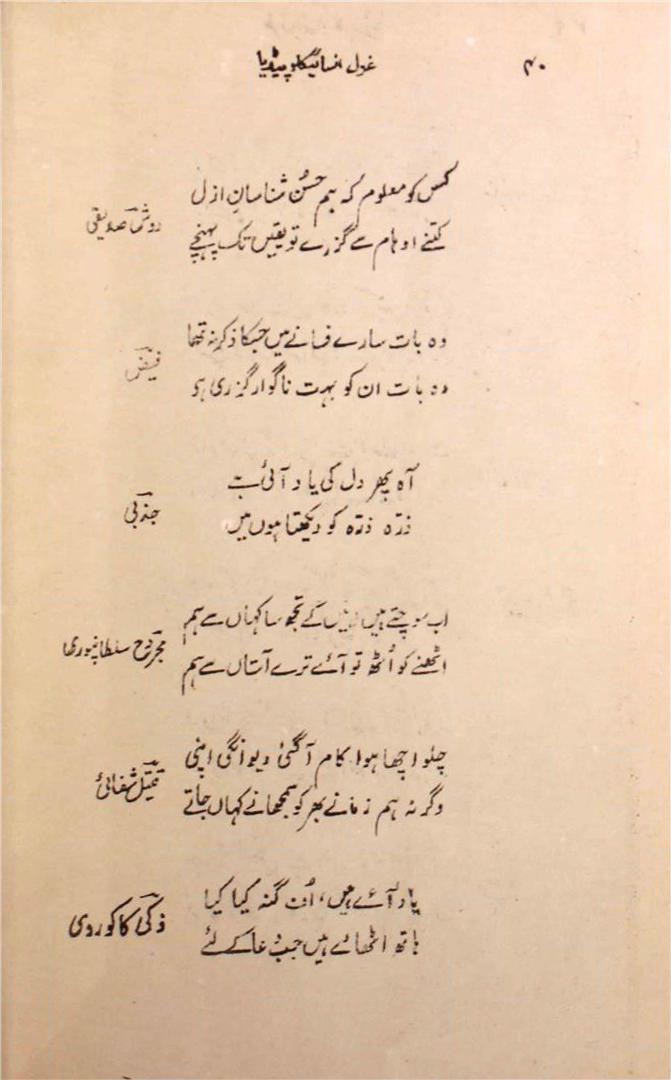 ۴۰
غزل انسائیکلوپیڈیا
کس کو معلوم کہ ہم حسُن شناسانِ ازل
کتنے اوہام سے گزرے تو یقیں تک پہنچے
روش صدیقی
وہ بات سارے فسانے میں جسکا ذکر نہ تھا
وہ بات ان کو بہت ناگوار گزری ہو
فیض
آہ پھر دل کی یاد آئی ہے
ذرّہ ذرّہ کو دیکھتا ہوں میں
جذبی
اب سوچتے ہیں لائیں گے تجھ سا کہاں سے ہم
اٹھنے کو اُٹھ تو آئے ترے آستاں سے ہم
مجروح سلطانپوری
چلو اچھا ہوا کام آگئی دیوانگی اپنی
وگرنہ ہم زمانے بھر کو سمجھانے کہاں جاتے
قتیل شفائی
یاد آئے ہیں، اُف گنہ کیا کیا
ہاتھ اٹھائے ہیں جب دعا کے لئے
ذکی کاکوروی